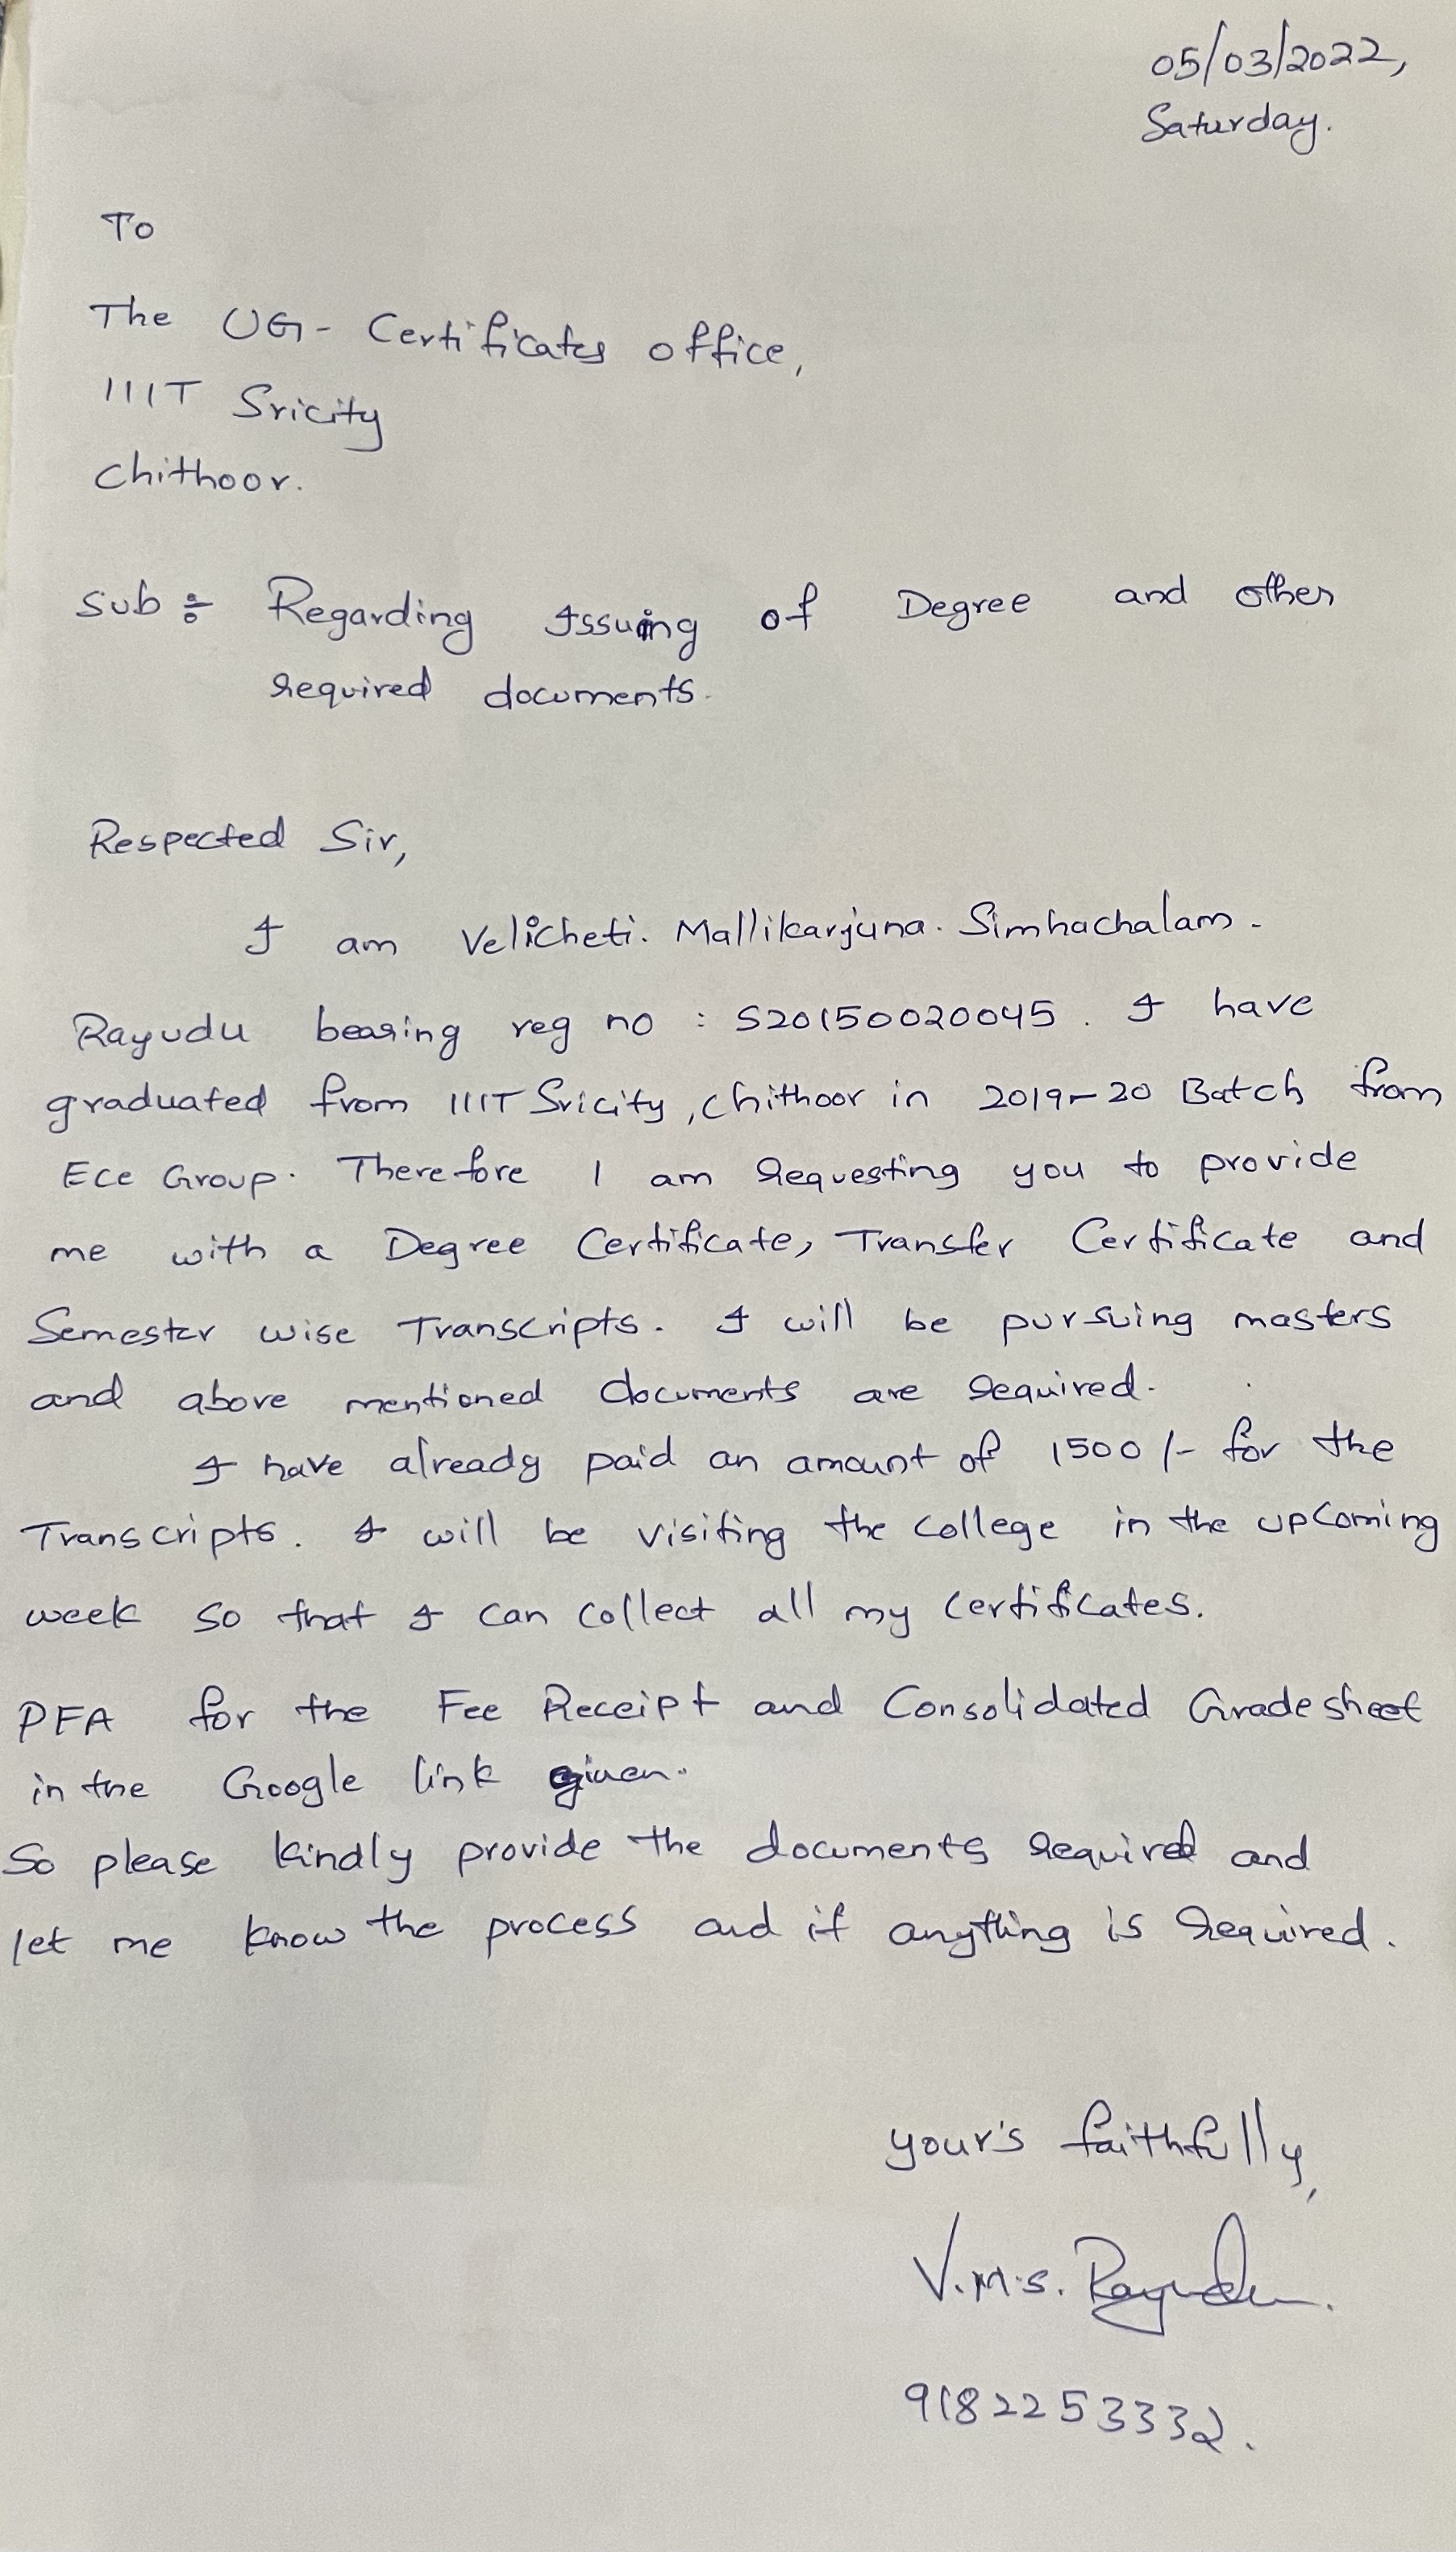 05/03/2022,
Saturday.
To
The UG- Certificates office,
IIIT Sricity
Chithoor.
Sub :- Regarding Issuing of Degree and other
required documents.
Respected Sir,
I am Velicheti. Mallikarjuna. Simhachalam -
Rayudu bearing reg no : S20150020045. I have
graduated from IIIT Sricity, Chithoor in 2019-20 Batch from
Ece Group. Therefore I am requesting you to provide
me with a Degree Certificate, Transfer Certificate and
Semester wise Transcripts. I will be pursuing masters
and above mentioned documents are required.
I have already paid an amount of 1500/- for the
Transcripts. I will be visiting the college in the upcoming
week so that I can collect all my certificates.
PFA for the Fee Receipt and Consolidated Gradesheet
in the Google link given.
So please kindly provide the documents required and
let me know the process and if anything is required.
your's faithfully,
V.M.S. Rayudu.
9182253332.